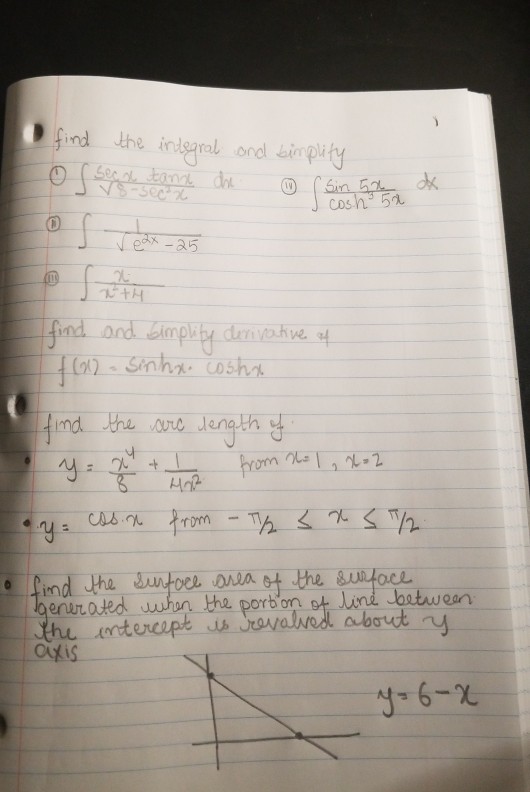 find the integral and simplify
① ∫ sec x tan x / √8-sec²x dx
ⓘⓥ ∫ sin 5x / cosh³ 5x dx
ⓘⓘ ∫ 1 / √e²ˣ - 25
ⓘⓘⓘ ∫ x / x²+4
find and simplify derivative of
f(x) = sinhx. coshx
find the arc length of
• y = x⁴/8 + 1/4x² from x=1, x=2
• y = cos.x from - π/2 ≤ x ≤ π/2.
• find the surface area of the surface
generated when the portion of line between
the intercept is revolved about y
axis
y = 6-x